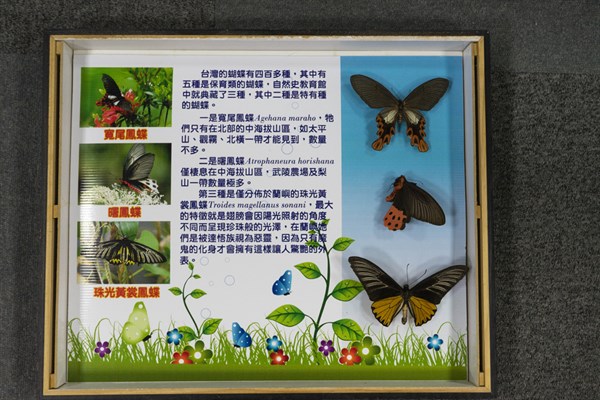 台灣的蝴蝶有四百多種，其中有
五種是保育類的蝴蝶，自然史教育館
中就典藏了三種，其中二種是特有種
的蝴蝶。
一是寬尾鳳蝶Agehana maraho，牠
們只有在北部的中海拔山區，如太平
山、觀霧、北橫一帶才能見到，數量
不多。
二是曙鳳蝶Atrophaneura horishana
僅棲息在中海拔山區，武陵農場及梨
山一帶數量極多。
第三種是僅分佈於蘭嶼的珠光黃
裳鳳蝶Troides magellanus sonani，最大
的特徵就是翅膀會因陽光照射的角度
不同而呈現珍珠般的光澤，在蘭嶼她
們是被達悟族視為惡靈，因為只有魔
鬼的化身才會擁有這樣讓人驚艷的外
表。
寬尾鳳蝶
曙鳳蝶
珠光黃裳鳳蝶